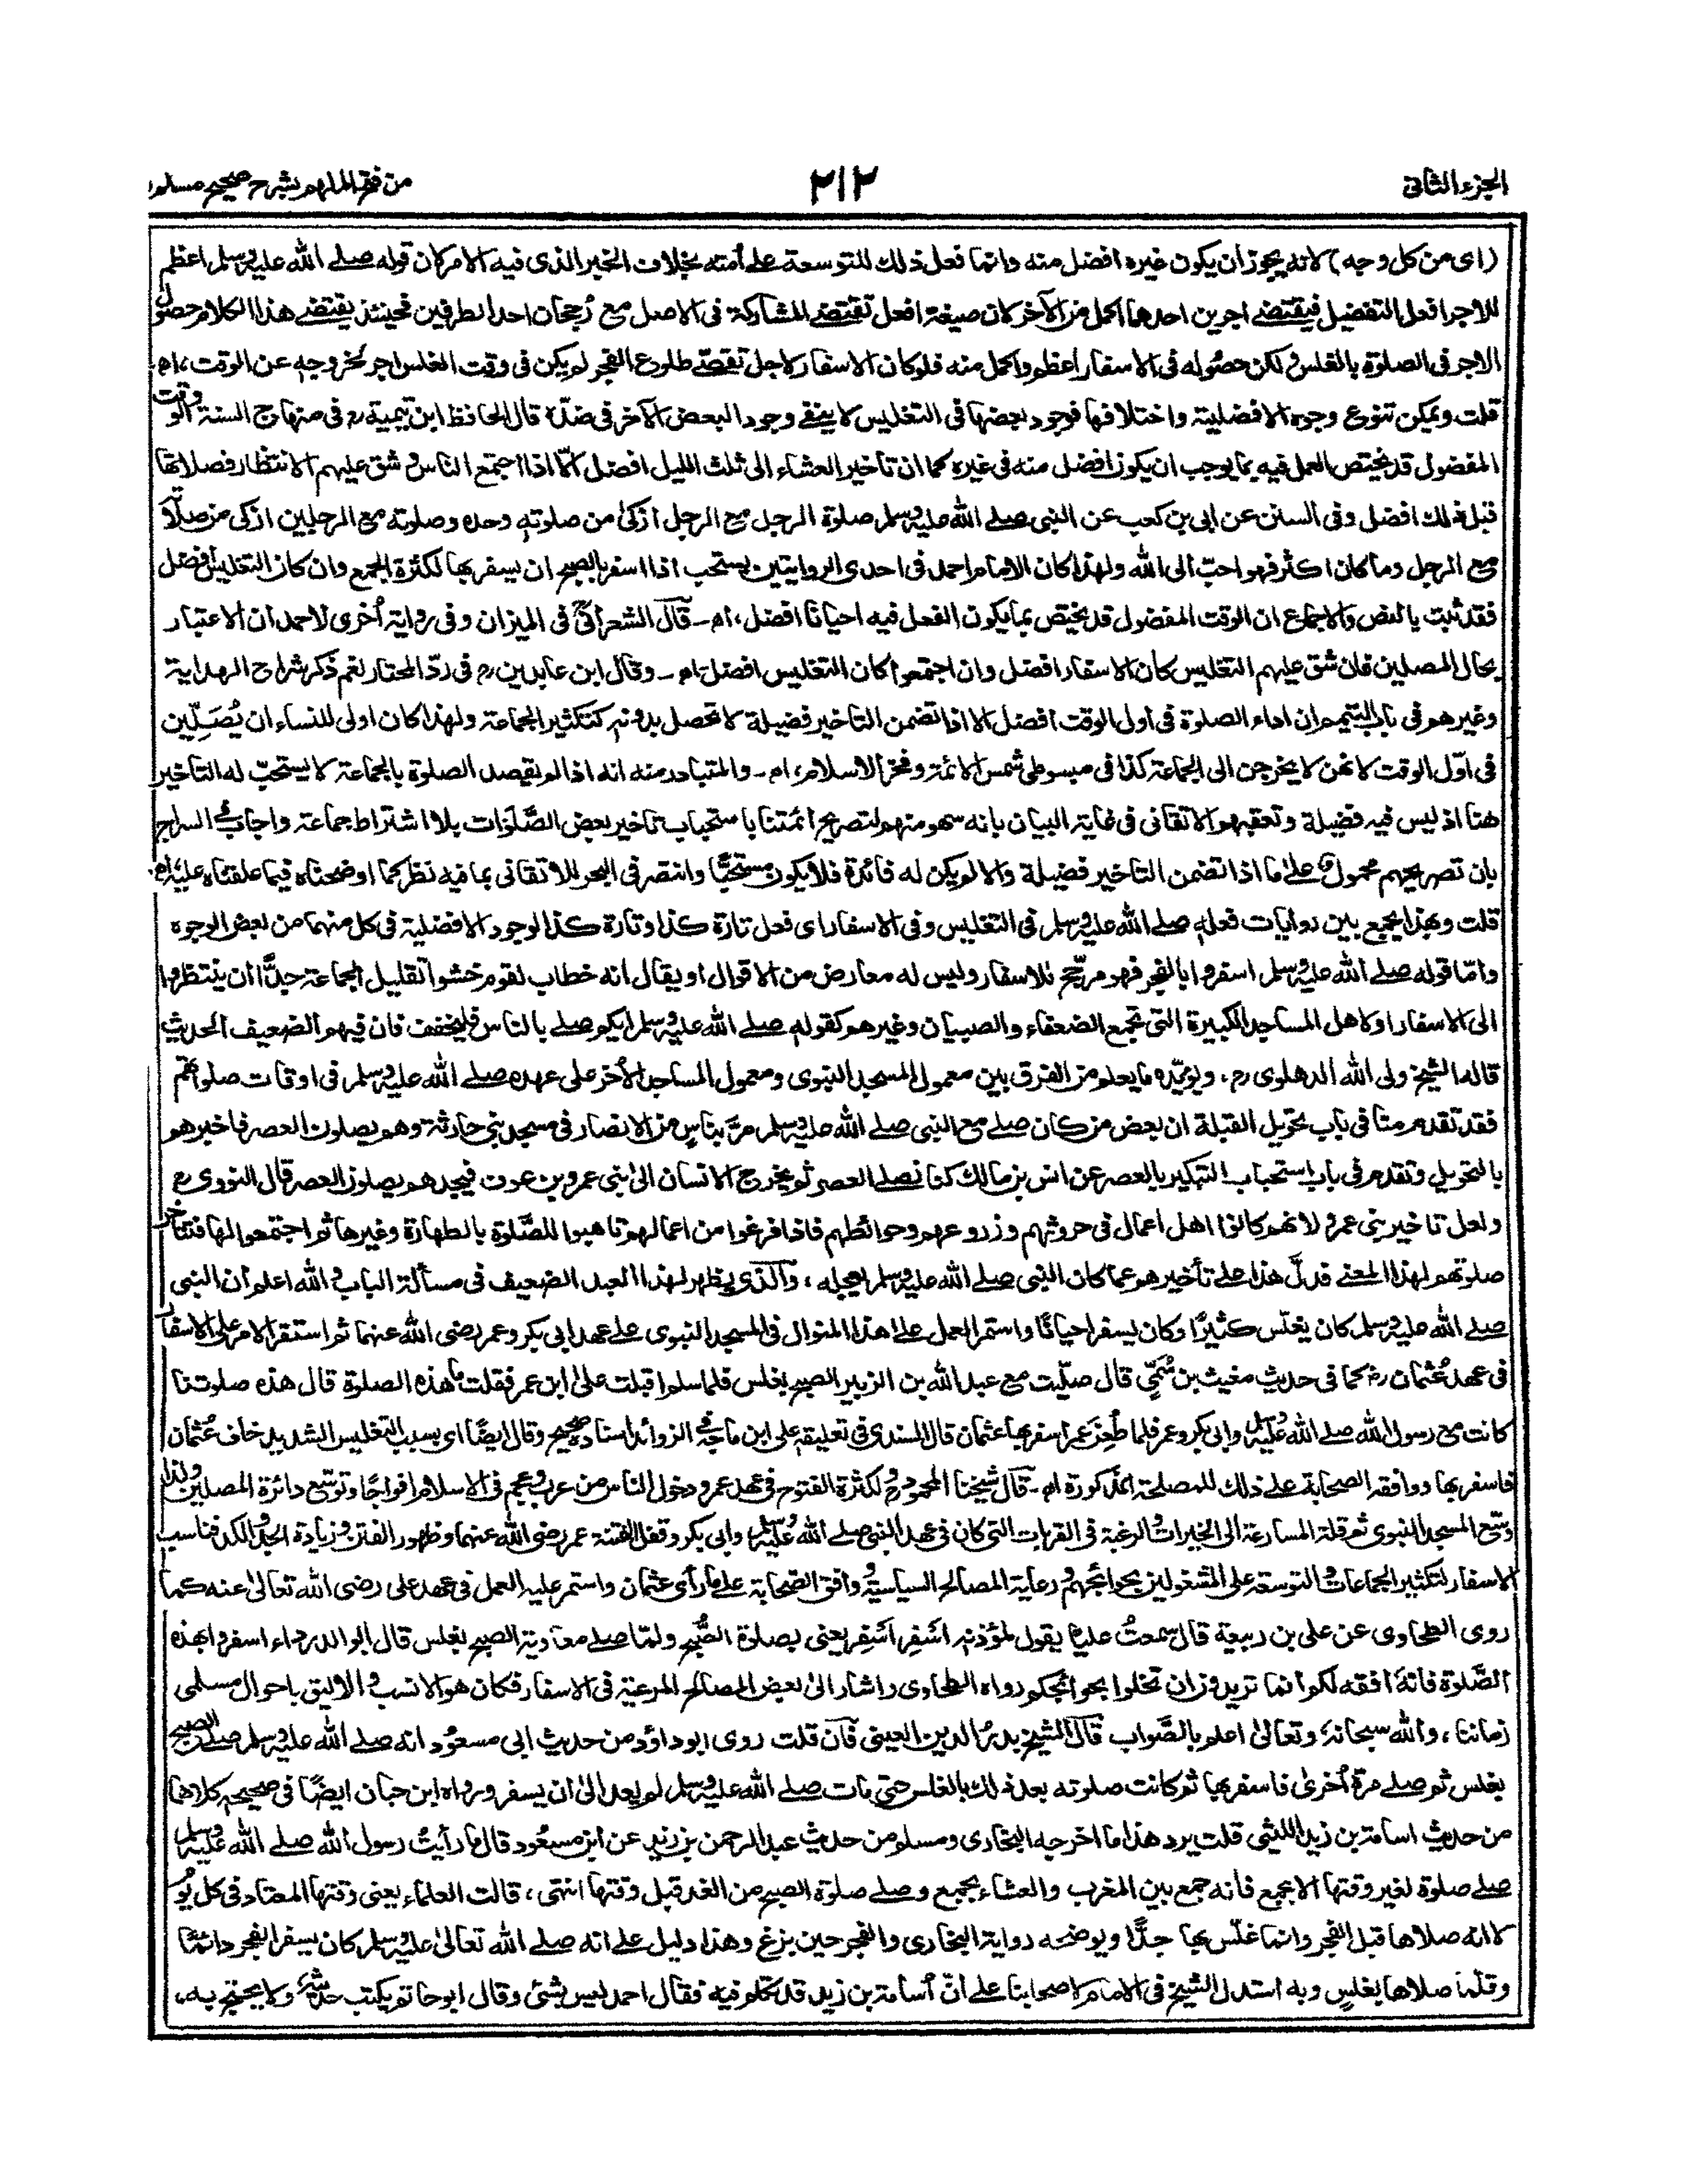 الجزء الثانی
۲۱۲
من فتح الملهم بشرح صحیح مسلم
(ای من کل وجه) لانه یجوز ان یکون غیره افضل منه وانما فعل ذلك للتوسعة علی أمته بخلاف الخبر الذی فیه الامر لان قوله صلی الله علیه وسلم اعظم
للاجر افعل التفضیل فیقتضی اجرین احدهما اکمل من الآخر لان صیغة افعل تقتضی المشارکة فی الاصل مع رُجحان احد الطرفین فحینئذ یقتضی هذا الکلام حصول
الاجر فی الصلوة بالغلس و لکن حصُوله فی الاسفار اعظم واکمل منه فلو کان الاسفار لاجل تقصّی طلوع الفجر لم یکن فی وقت الغلس اجر لخروجه عن الوقت، اھ
قلت ویمکن تنوع وجوه الافضلیة واختلافها فوجود بعضها فی التغلیس لا ینفی وجود البعض الآخر فی ضدّه قال الحافظ ابن تیمیة رح فی منهاج السنة الوقت
المفضول قد یختص العمل فیه بما یوجب ان یکون افضل منه فی غیره کما ان تاخیر العشاء الی ثلث اللیل افضل الّا اذا اجتمع الناس و شق علیهم الانتظار فصلاتها
قبل ذلك افضل وفی السنن عن ابی بن کعب عن النبی صلی الله علیه وسلم صلوة الرجل مع الرجل ازکیٰ من صلوته وحده وصلوته مع الرجلین ازکی من صلاته
مع الرجل وما کان اکثر فهو احبّ الی الله ولهذا کان الامام احمد فی احدی الروایتین یستحب اذا اسفر بالصبح ان یسفر بها لکثرة الجمع وان کان التغلیس افضل
فقد ثبت بالنص والاجماع ان الوقت المفضول قد یختص بما یکون الفعل فیه احیانًا افضل، اھ - قال الشعرانیؒ فی المیزان وفی روایة أخری لاحمد ان الاعتبار
بحال المصلین فان شق علیهم التغلیس کان الاسفار افضل وان اجتمعوا کان التغلیس افضل، اھ - وقال ابن عابدین رح فی ردّ المحتار نعم ذکر شراح الهدایة
وغیرهم فی باب التیمم ان اداء الصلوة فی اول الوقت افضل الا اذا تضمن التاخیر فضیلة لا تحصل بدونه کتکثیر الجماعة ولهذا کان اولی للنساء ان یُصَلِّین
فی اوّل الوقت لانهن لا یخرجن الی الجماعة کذا فی مبسوطی شمس الائمة وفخر الاسلام، اھ - والمتبادر منه انه اذا لم یقصد الصلوة بالجماعة لا یستحبّ له التاخیر
هنا اذ لیس فیه فضیلة وتعقبهم الاتقانی فی غایة البیان بانه سهو منهم لتصریح ائمتنا باستحباب تاخیر بعض الصَّلَوَات بلا اشتراط جماعة واجاب فی السراج
بان تصریحهم محمول علی ما اذا تضمن التاخیر فضیلة والا لم یکن له فائدة فلا یکون مستحبًّا وانتصر فی البحر للاتقانی بما فیه نظر کما اوضحناه فیما علقناه علیه، اھ
قلت وبهذا یجمع بین روایات فعله صلی الله علیه وسلم فی التغلیس وفی الاسفار ای فعل تارة کذا وتارة کذا لوجود الافضلیة فی کل منهما من بعض الوجوه
وامّا قوله صلی الله علیه وسلم اسفروا بالفجر فهو مرجّح للاسفار ولیس له معارض من الاقوال او یقال انه خطاب لقوم خشوا تقلیل الجماعة جدًّا ان ینتظروا
الی الاسفار او لاهل المساجد الکبیرة التی تجمع الضعفاء والصبیان وغیرهم کقوله صلی الله علیه وسلم ایکم صلی بالناس فلیخفف فان فیهم الضعیف الحدیث
قاله الشیخ ولی الله الدهلوی رح، ویؤیّده ما یعلم من الفرق بین معمول المسجد النبوی ومعمول المساجد الأخر علی عهده صلی الله علیه وسلم فی اوقات صلواتهم
فقد تقدم منا فی باب تحویل القبلة ان بعض من کان صلی مع النبی صلی الله علیه وسلم مرّ بناسٍ من الانصار فی مسجد بنی حارثة وهم یصلون العصر فاخبرهم
بالتحویل وتقدم فی باب استحباب التبکیر بالعصر عن انس بن مالك کنا نصلی العصر ثم یخرج الانسان الی بنی عمرو بن عوف فیجدهم یصلون العصر قال النووی رح
ولعل تاخیر بنی عمرو لانهم کانوا اهل اعمال فی حروثهم وزروعهم وحوائطهم فاذا فرغوا من اعمالهم تاهبوا للصَّلوة بالطهارة وغیرها ثم اجتمعوا لها فتتاخر
صلوتهم لهذا المعنی فدلّ هذا علی تأخیرهم عما کان النبی صلی الله علیه وسلم یعجله، والذی یظهر لهذا العبد الضعیف فی مسألة الباب والله اعلم ان النبی
صلی الله علیه وسلم کان یغلّس کثیرًا وکان یسفر احیانًا واستمر العمل علی هذا المنوال فی المسجد النبوی علی عهد ابی بکر وعمر رضی الله عنهما ثم استقر الامر علی الاسفار
فی عهد عُثمان رض کما فی حدیث مغیث بن سُمیّ قال صلّیت مع عبد الله بن الزبیر الصبح بغلس فلما سلم اقبلت علیٰ ابن عمر فقلت ما هذه الصلوة قال هذه صلوتنا
کانت مع رسول الله صلی الله علیه وسلم وابی بکر وعمر فلما طُعِنَ عمر اسفر بها عثمان قال السندی فی تعلیقه علی ابن ماجه فی الزوائد اسناده صحیح وقال ایضًا ای بسبب التغلیس الشدید خاف عُثمان
فاسفر بها ووافقه الصحابة علی ذلك للمصلحة المذکورة اھ - قال شیخنا المحمود رح لکثرة الفتوح فی عهد عمر ودخول الناس من عرب وعجم فی الاسلام افواجًا وتوسّع دائرة المصلین ولذا
وسّع المسجد النبوی ثم قلة المسارعة الی الخیرات والرغبة فی القربات التی کان فی عهد النبی صلی الله علیه وسلم وابی بکر وقفل الفتنة عمر رضی الله عنهما وظهور الفتن وزیادة الجدّ والکد فناسب
الاسفار لتکثیر الجماعات والتوسعة علی المشتغلین بحوائجهم ورعایة المصالح السیاسیة ووافق الصّحابة علی ما رأی عثمان واستمر علیه العمل فی عهد علی رضی الله تعالیٰ عنه کما
روی الطحاوی عن علی بن ربیعة قال سمعتُ علیا یقول لمؤذنه اَسْفِر اَسْفِر یعنی بصلوة الصُّبح ولمّا صلی معاویة الصبح بغلس قال ابو الدرداء اسفروا بهذه
الصَّلوة فانهٗ افقه لکم انما تریدون ان تخلوا بحوائجکم رواه الطحاوی واشار الیٰ بعض المصالح المرعیة فی الاسفار فکان هو الانسب والالیق باحوال مسلمی
زماننا، والله سبحانهٗ وتعالیٰ اعلم بالصَّواب قال الشیخ بدرُ الدین العینی فان قلت روی ابو داؤد من حدیث ابی مسعُود انه صلی الله علیه وسلم صلی الصبح
بغلس ثم صلی مرة أخریٰ فاسفر بها ثم کانت صلوته بعد ذلك بالغلس حتی مات صلی الله علیه وسلم لم یعد الیٰ ان یسفر ورواه ابن حبان ایضًا فی صحیحه کلاهما
من حدیث اسامة بن زید اللیثی قلت یرد هذا ما اخرجه البخاری ومسلم من حدیث عبد الرحمن بن زید عن ابن مسعُود قال ما رأیتُ رسول الله صلی الله علیه وسلم
صلی صلوة لغیر وقتها الا بجمع فانه جمع بین المغرب والعشاء بجمع وصلی صلوة الصبح من الغد قبل وقتها انتهی، قالت العلماء یعنی وقتها المعتاد فی کل یوم
لا انه صلاها قبل الفجر وانما غلّس بها جدًّا ویوضحه روایة البخاری والفجر حین بزغ وهذا دلیل علی انه صلی الله تعالیٰ علیه وسلم کان یسفر الفجر دائمًا
وقلّما صلاها بغلسٍ وبه استدل الشیخ فی الامام لاصحابنا علی انّ أسامة بن زید قد تکلم فیه فقال احمد لیس بشئ وقال ابو حاتم یکتب حدیثه ولا یحتج به،